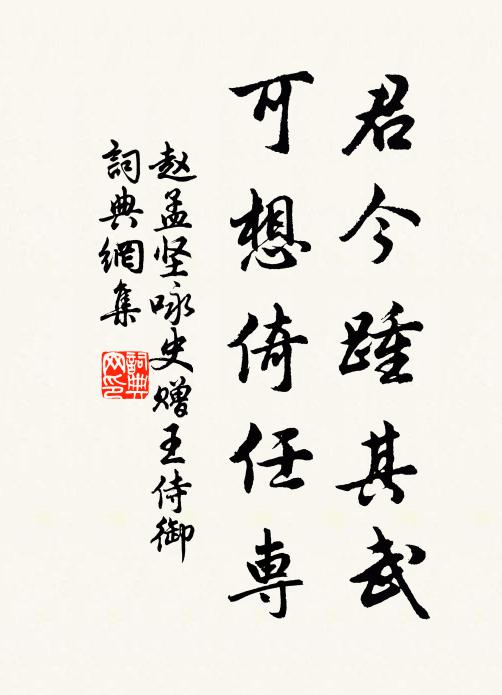 君今踵其武
可想倚任専
赵孟坚咏史赠王侍御
詞典網集
詞典网印